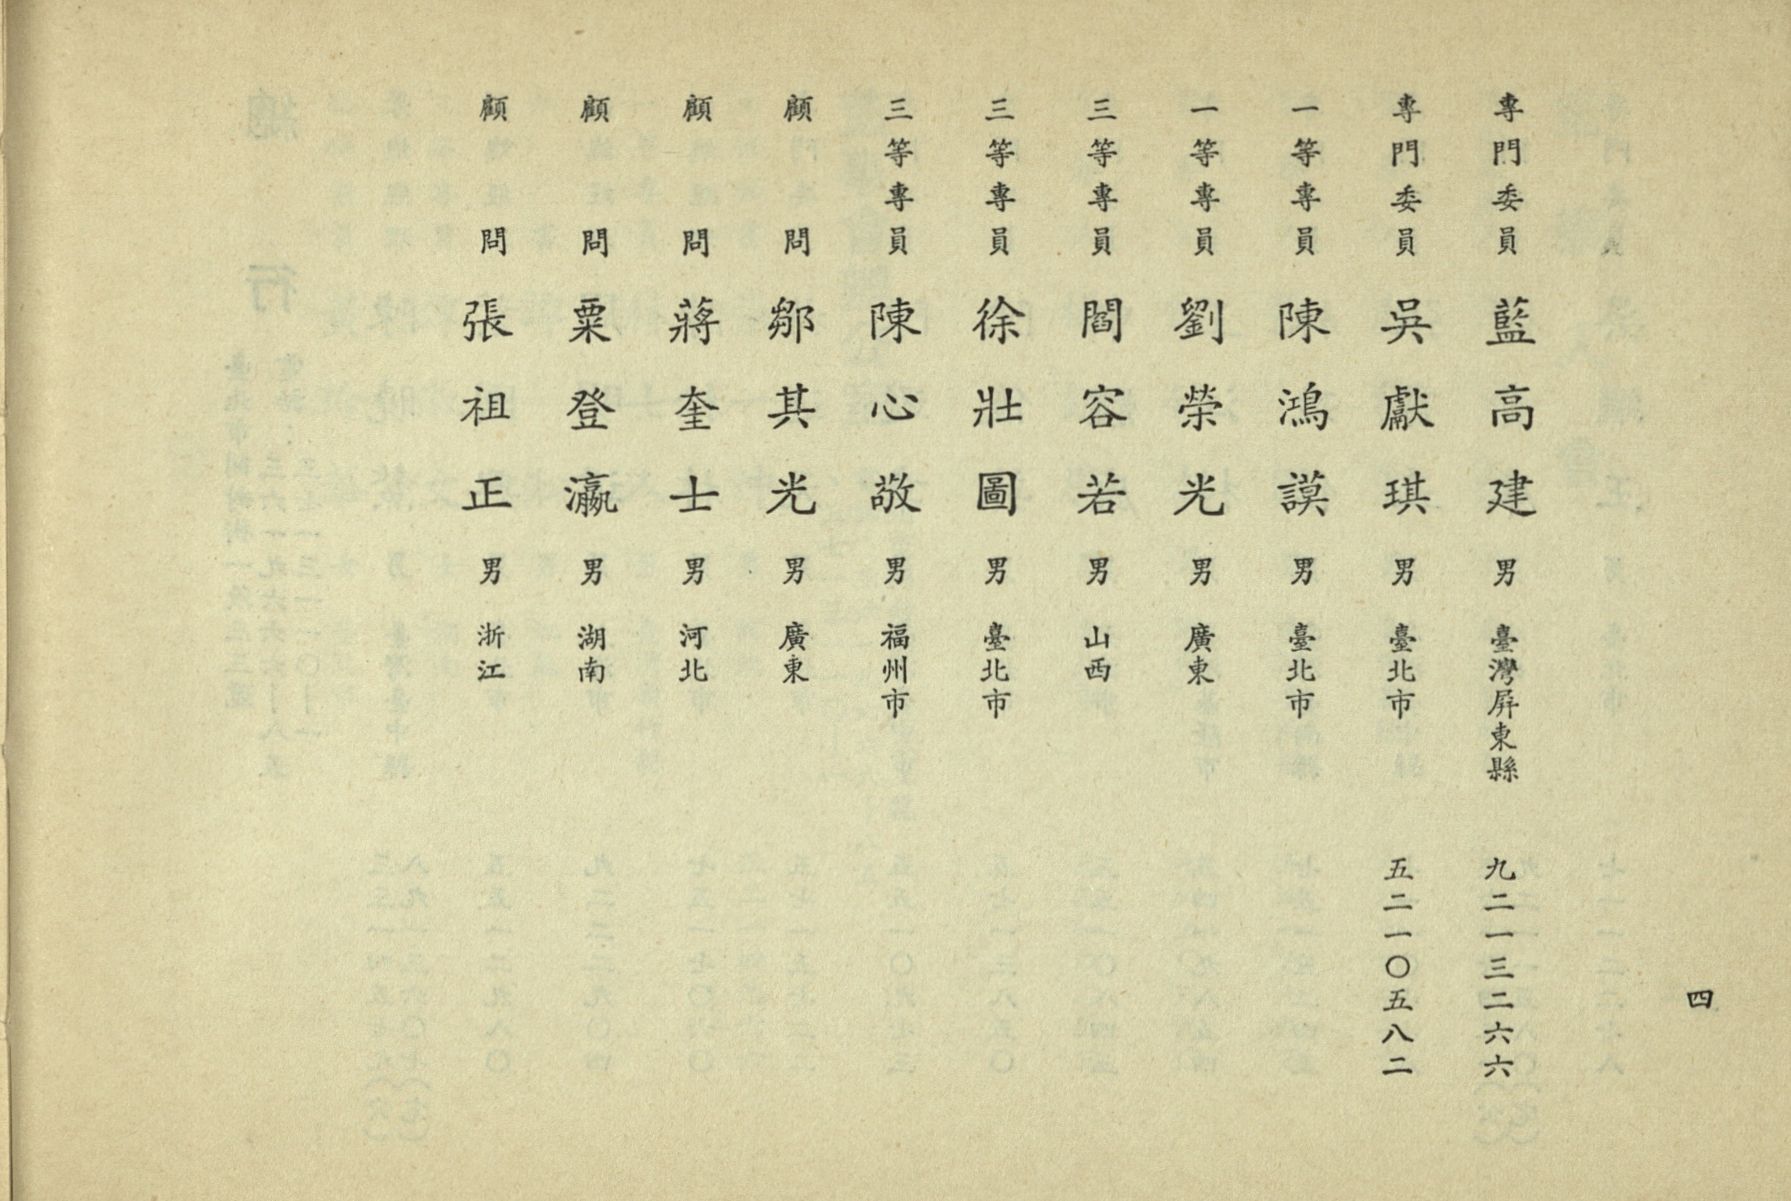 四
專門委員 藍高建 男 臺灣屏東縣 九二一三二六六
專門委員 吳獻琪 男 臺北市 五二一〇五八二
一等專員 陳鴻謨 男 臺北市
一等專員 劉榮光 男 廣東
三等專員 閻容若 男 山西
三等專員 徐壯圖 男 臺北市
三等專員 陳心敬 男 福州市
顧問 鄒其光 男 廣東
顧問 蔣奎士 男 河北
顧問 粟登瀛 男 湖南
顧問 張祖正 男 浙江